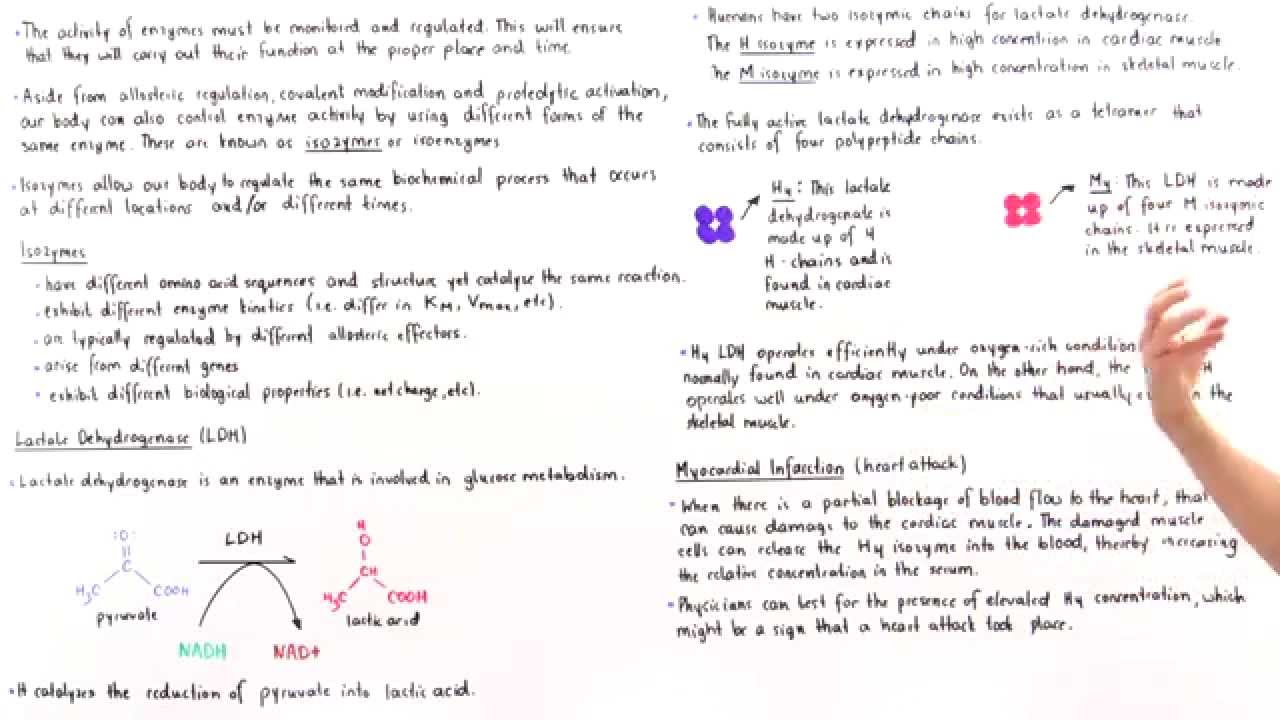 • The activity of enzymes must be monitored and regulated. This will ensure
that they will carry out their function at the proper place and time.
• Aside from allosteric regulation, covalent modification and proteolytic activation,
our body can also control enzyme activity by using different forms of the
same enzyme. These are known as isozymes or isoenzymes
• Isozymes allow our body to regulate the same biochemical process that occurs
at different locations and/or different times.
Isozymes
• have different amino acid sequences and structure yet catalyze the same reaction.
• exhibit different enzyme kinetics (i.e. differ in KM, Vmax, etc).
• are typically regulated by different allosteric effectors.
• arise from different genes
• exhibit different biological properties (i.e. net charge, etc).
Lactate Dehydrogenase (LDH)
• Lactate dehydrogenase is an enzyme that is involved in glucose metabolism.
:O:
C
H3C COOH
pyruvate
LDH
NADH NAD+
H
O
CH
H3C COOH
lactic acid
• It catalyzes the reduction of pyruvate into lactic acid.
• Humans have two isozymic chains for lactate dehydrogenase.
The H isozyme is expressed in high concentriion in cardiac muscle
The M isozyme is expressed in high concentration in skeletal muscle.
• The fully active lactate dehydrogenase exists as a tetramer that
consists of four polypeptide chains.
H4: This lactate
dehydrogenase is
made up of 4
H-chains and is
found in cardiac
muscle.
M4: This LDH is made
up of four M isozymic
chains. It is expressed
in the skeletal muscle.
• H4 LDH operates efficiently under oxygen-rich condition
normally found in cardiac muscle. On the other hand, the H
operates well under oxygen-poor conditions that usually the
skeletal muscle.
Myocardial Infarction (heart attack)
• When there is a partial blockage of blood flow to the heart, that
can cause damage to the cardiac muscle. The damaged muscle
cells can release the H4 isozyme into the blood, thereby increasing
the relative concentration in the serum.
• Physicians can test for the presence of elevated H4 concentration, which
might be a sign that a heart attack took place.